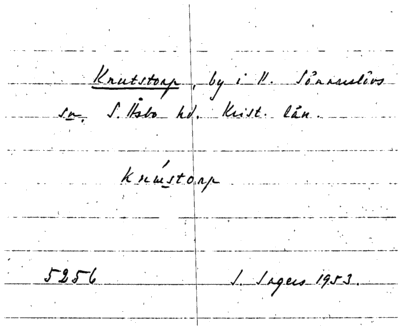 Knutstorp, by i N. Sönnarslövs
sn, S. Åsbo hd. Krist. län.
Knústorp
5256 I. Ingers 1953.